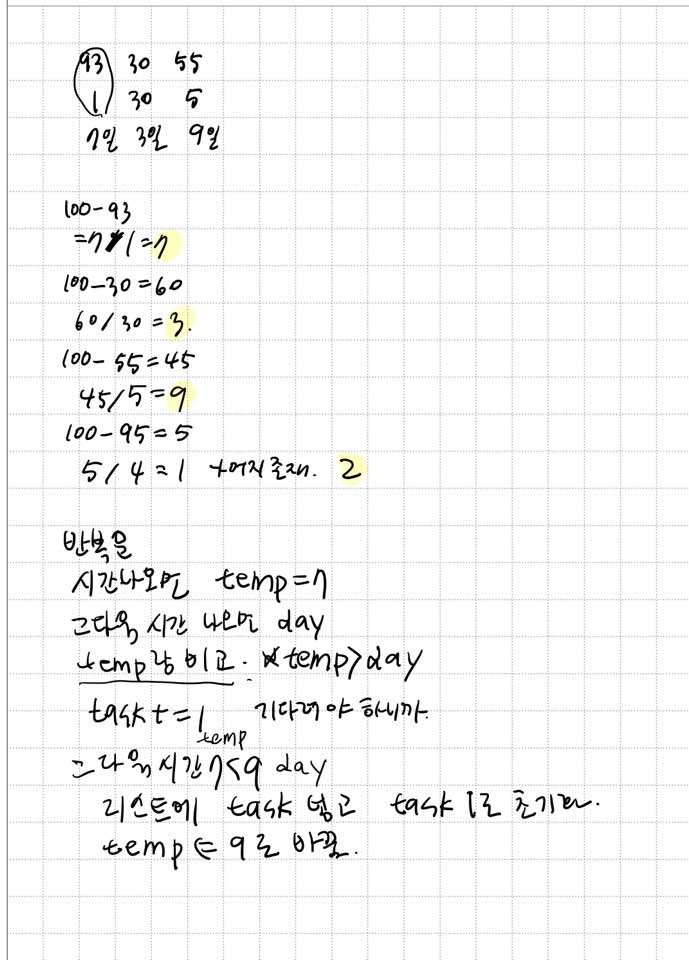 93 30 55
1 30 5
7일 3일 9일
100-93
=7 / 1 = 7
100-30=60
60/30=3.
100-55=45
45/5=9
100-95=5
5/4=1 나머지존재. 2
반복문
시간나오면 temp=7
그다음 시간 나오면 day
temp랑 비교. temp>day
task+=1 기다려야 하니까.
temp
그다음 시간 7<9 day
리스트에 task 넣고 task 1로 초기화.
temp는 9로 바꿈.